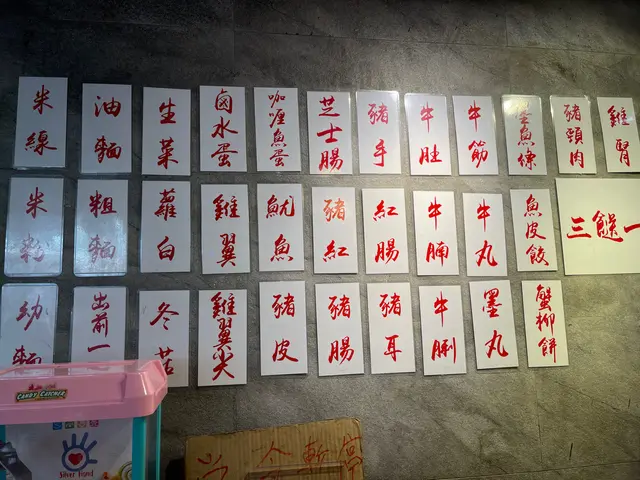 米線
油麵
生菜
鹵水蛋
咖喱魚蛋
芝士腸
豬手
牛肚
牛筋
豬頸肉
雞腎
米粉
粗麵
蘿白
雞翼
魷魚
豬紅
紅腸
牛腩
牛丸
魚皮餃
三餸一
幼麵
出前一
冬菇
雞翼尖
豬皮
豬腸
豬耳
牛脷
墨丸
蟹柳餅
CANDY CATCHER
Silver Hand